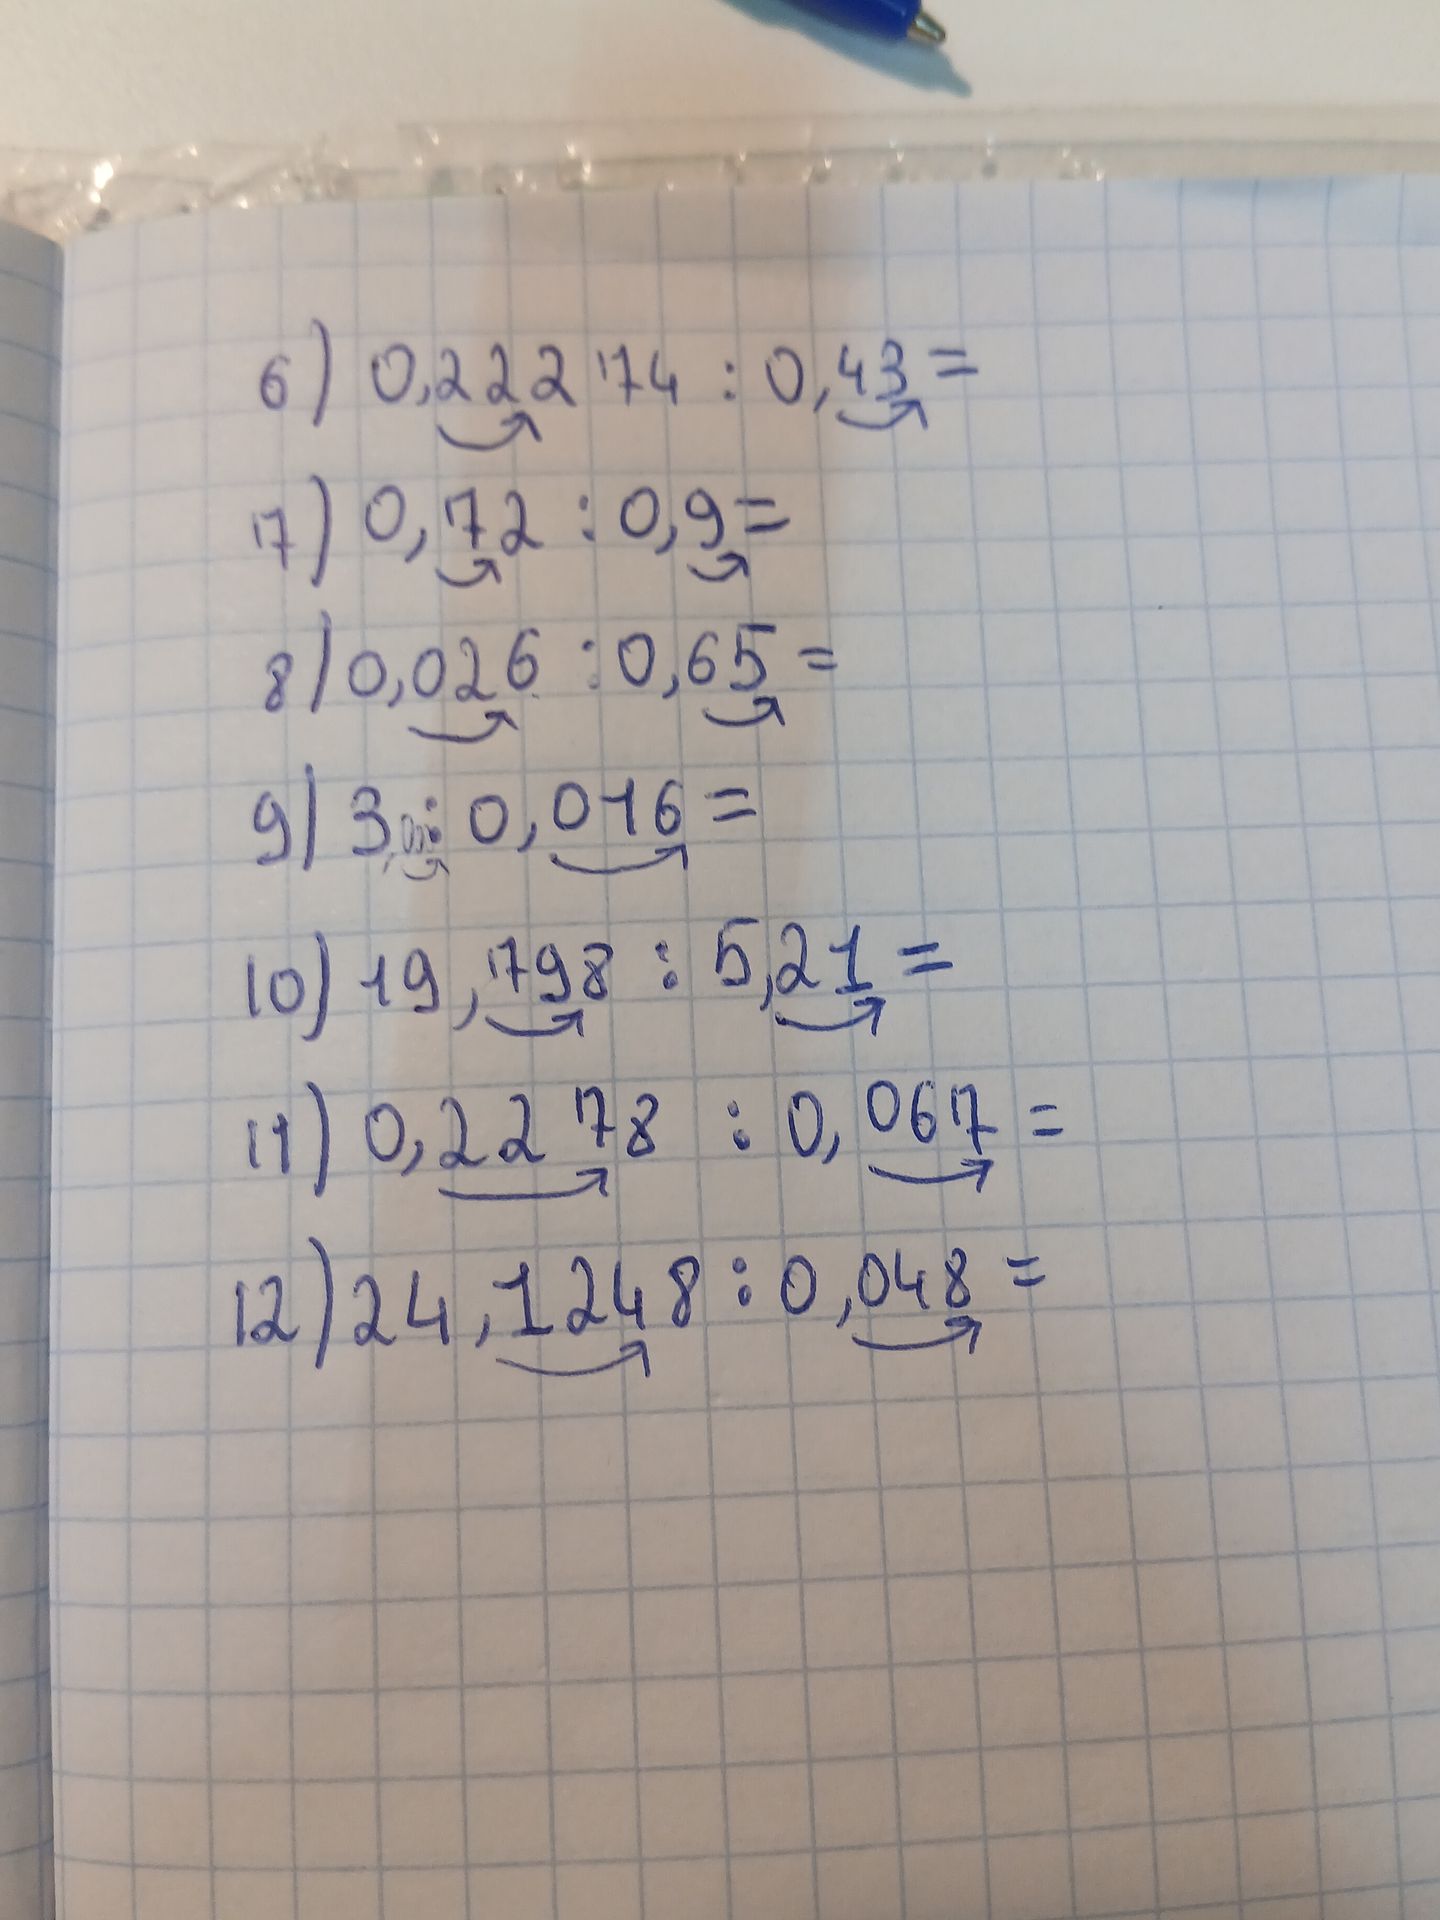 6) 0,22274 : 0,43=
7) 0,72 : 0,9=
8) 0,026 : 0,65=
9) 3,000 : 0,016=
10) 19,798 : 5,21=
11) 0,2278 : 0,067=
12) 24,1248 : 0,048=